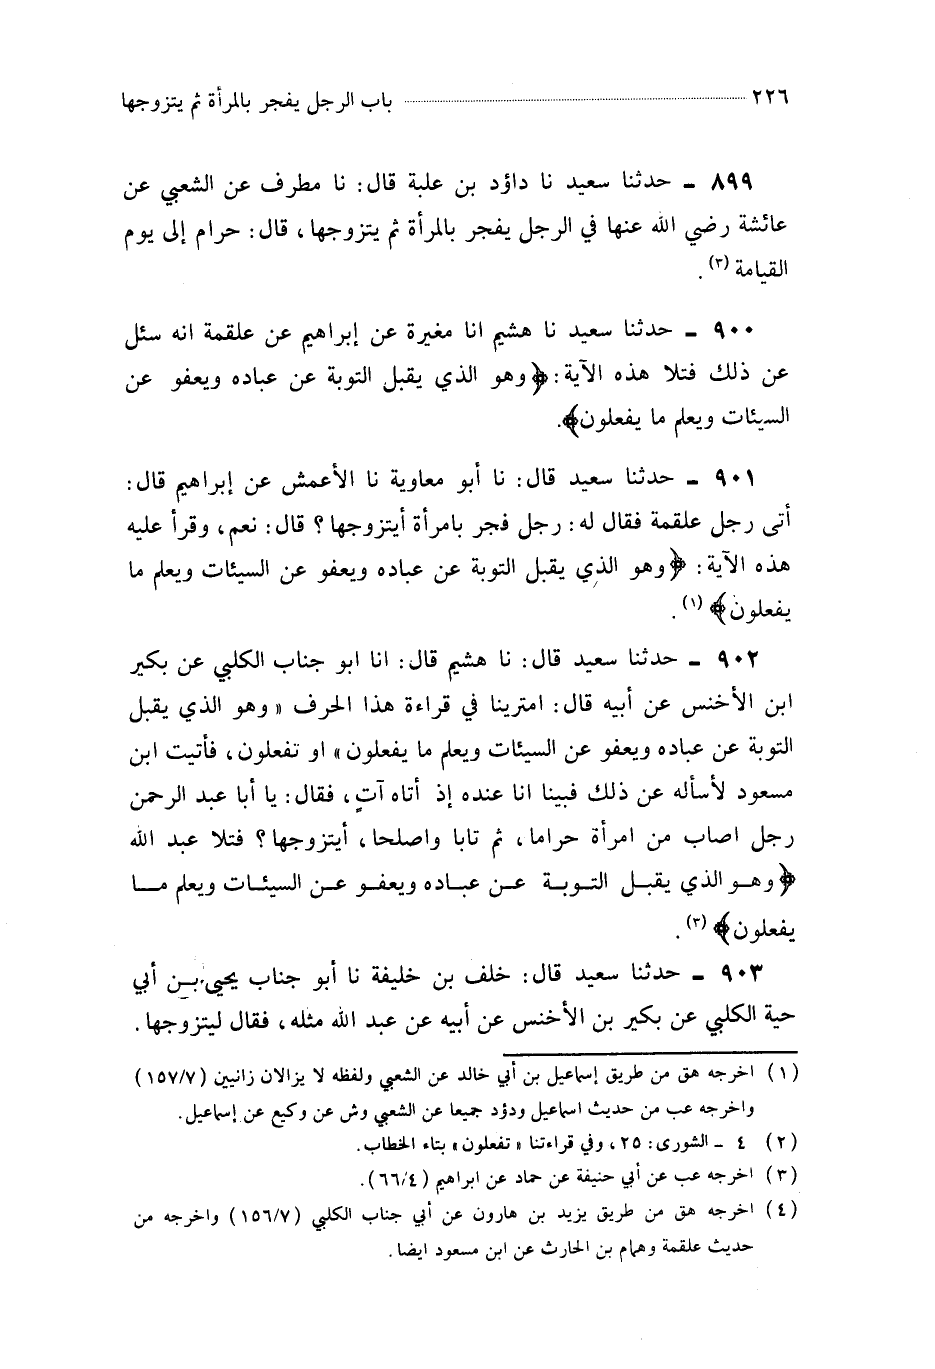 ٢٢٦ باب الرجل يفجر بالمرأة ثم يتزوجها
٨٩٩ ـ حدثنا سعيد نا داؤد بن علبة قال: نا مطرف عن الشعبي عن
عائشة رضي الله عنها في الرجل يفجر بالمرأة ثم يتزوجها، قال: حرام إلى يوم
القيامة (٣).
٩٠٠ ـ حدثنا سعيد نا هشيم انا مغيرة عن إبراهيم عن علقمة انه سئل
عن ذلك فتلا هذه الآية: ﴿وهو الذي يقبل التوبة عن عباده ويعفو عن
السيئات ويعلم ما يفعلون﴾.
٩٠١ ـ حدثنا سعيد قال: نا أبو معاوية نا الأعمش عن إبراهيم قال:
أتى رجل علقمة فقال له: رجل فجر بامرأة أيتزوجها؟ قال: نعم، وقرأ عليه
هذه الآية: ﴿وهو الذي يقبل التوبة عن عباده ويعفو عن السيئات ويعلم ما
يفعلون﴾ (١).
٩٠٢ ـ حدثنا سعيد قال: نا هشيم قال: انا ابو جناب الكلبي عن بكير
ابن الأخنس عن أبيه قال: امترينا في قراءة هذا الحرف «وهو الذي يقبل
التوبة عن عباده ويعفو عن السيئات ويعلم ما يفعلون» او تفعلون، فأتيت ابن
مسعود لأسأله عن ذلك فبينا انا عنده إذ أتاه آتٍ، فقال: يا أبا عبد الرحمن
رجل اصاب من امرأة حراما، ثم تابا واصلحا، أيتزوجها؟ فتلا عبد الله
﴿وهو الذي يقبل التوبة عن عباده ويعفو عن السيئات ويعلم ما
يفعلون﴾ (٣).
٩٠٣ ـ حدثنا سعيد قال: خلف بن خليفة نا أبو جناب يحيى بن أبي
حية الكلبي عن بكير بن الأخنس عن أبيه عن عبد الله مثله، فقال ليتزوجها.
(١) اخرجه هق من طريق إسماعيل بن أبي خالد عن الشعبي ولفظه لا يزالان زانيين (١٥٧/٧)
واخرجه عب من حديث اسماعيل ودؤد جميعا عن الشعبي وش عن وكيع عن إسماعيل.
(٢) ٤ ـ الشورى: ٢٥، وفي قراءتنا «تفعلون» بتاء الخطاب.
(٣) اخرجه عب عن أبي حنيفة عن حماد عن ابراهيم (٦٦/٤).
(٤) اخرجه هق من طريق يزيد بن هارون عن أبي جناب الكلبي (١٥٦/٧) واخرجه من
حديث علقمة وهمام بن الحارث عن ابن مسعود ايضا.